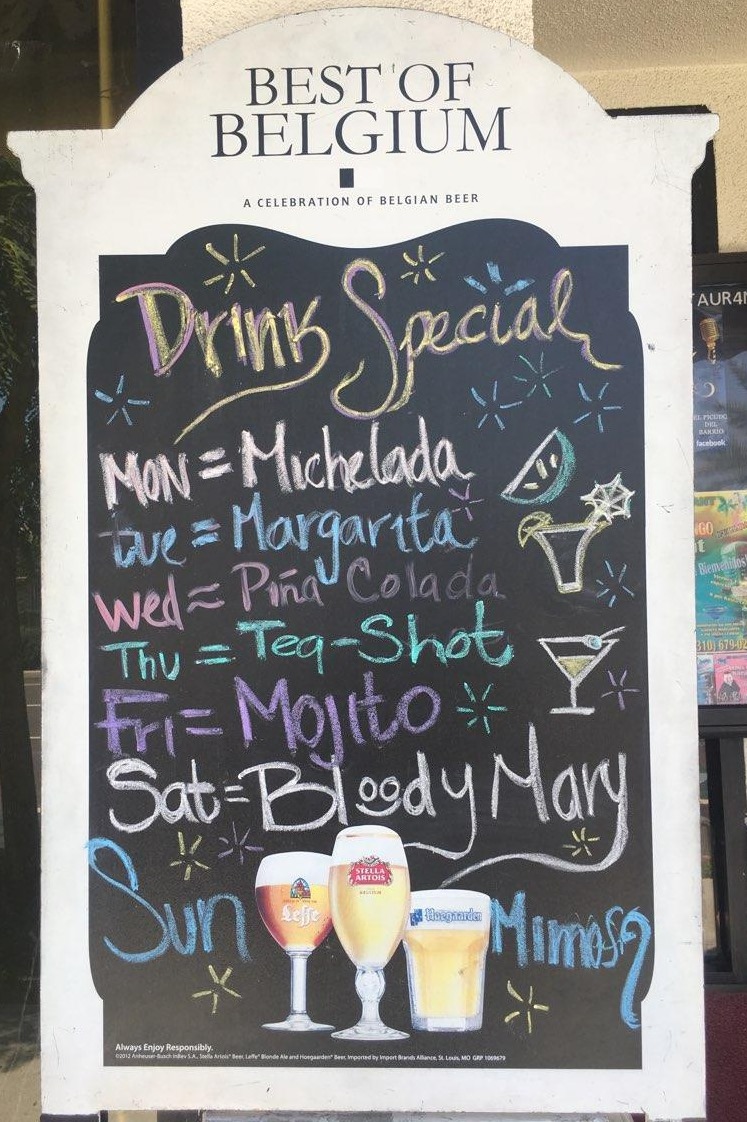 BEST OF
BELGIUM
A CELEBRATION OF BELGIAN BEER
Drink Special
Mon = Michelada
tue = Margarita
Wed = Piña Colada
Thu = Teq-Shot
Fri = Mojito
Sat = Bloody Mary
Sun Mimosa
Leffe
STELLA
ARTOIS
Hoegaarden
Always Enjoy Responsibly.
©2012 Anheuser-Busch InBev S.A., Stella Artois® Beer, Leffe® Blonde Ale and Hoegaarden® Beer, Imported by Import Brands Alliance, St. Louis, MO GRP 1069679
EL PICUDO
DEL
BARRIO
facebook
Bienvenidos